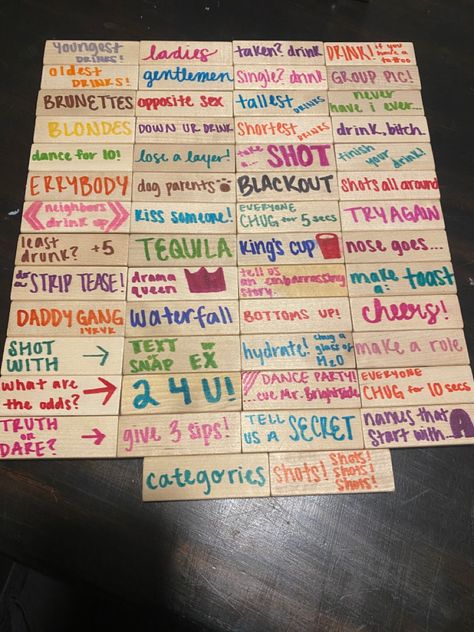 youngest DRINKS!
ladies
taken? drink
DRINK! if you have a tattoo
oldest DRINKS!
gentlemen
single? drink
GROUP PIC!
BRUNETTES
opposite sex
tallest DRINKS
never have i ever...
BLONDES
DOWN UR DRINK
shortest DRINKS
drink, bitch.
dance for 10!
lose a layer!
take a... SHOT
finish your drink!
ERRYBODY
dog parents
BLACKOUT
shots all around
neighbors drink
kiss someone!
EVERYONE CHUG for 5 secs
TRY AGAIN
least drunk? +5
TEQUILA
king's cup
nose goes...
STRIP TEASE!
drama queen
tell us an embarrassing story.
make a: toast
DADDY GANG
waterfall
BOTTOMS UP!
cheers!
SHOT WITH →
TEXT or SNAP EX
hydrate! chug a glass of H2O
make a rule
what are the odds? →
2 4 U!
DANCE PARTY! ...cue Mr. Brightside
EVERYONE CHUG for 10 secs
TRUTH OR DARE? →
give 3 sips!
TELL US A SECRET
names that start with...
categories
shots! shots! shots! shots!